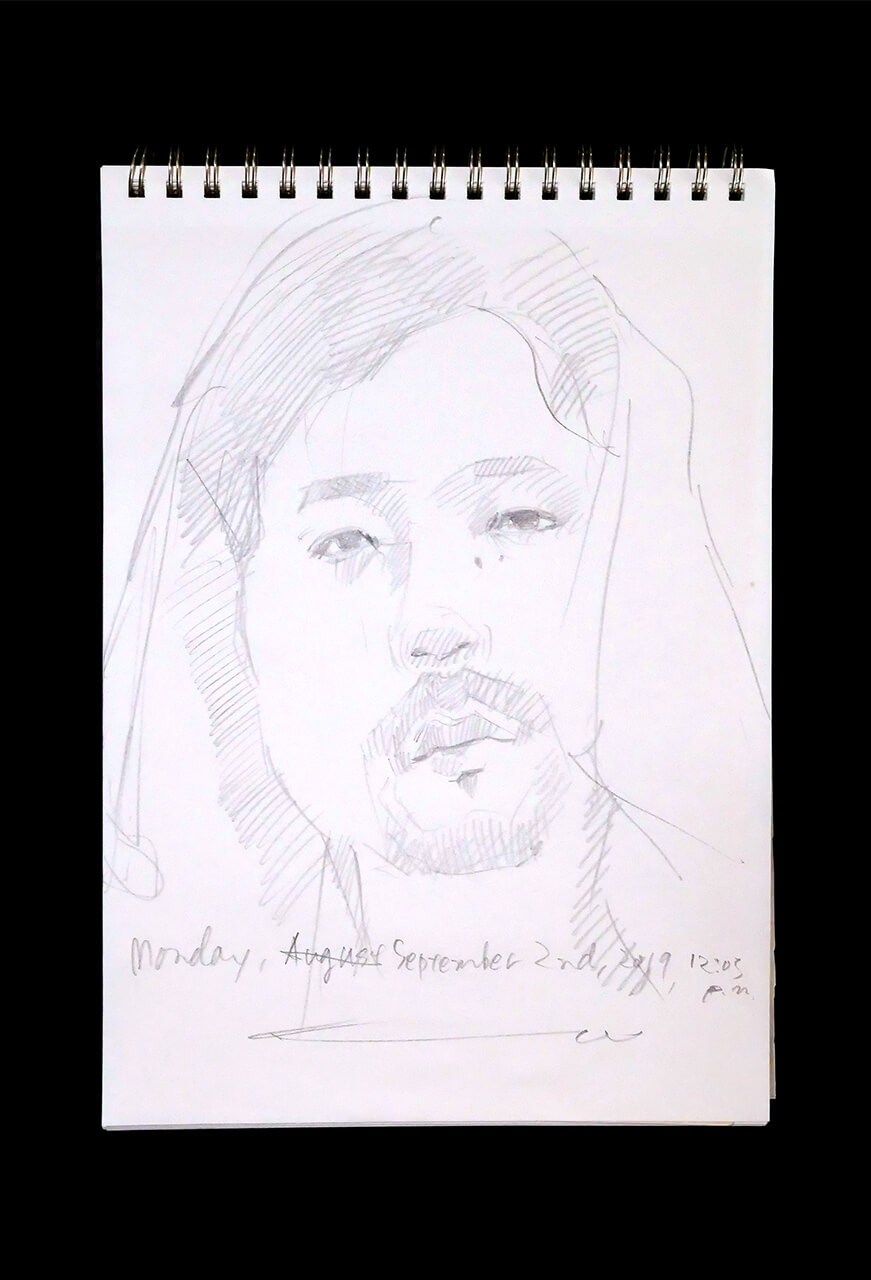 Monday, August September 2nd, 2019, 12:03
p.m.